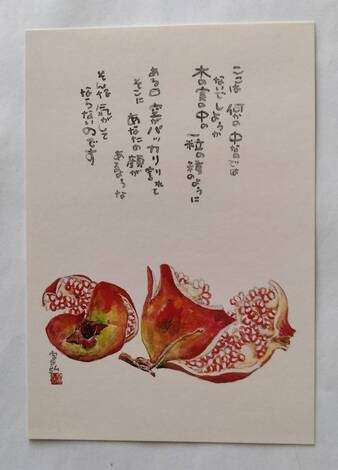 ここは 何かの 中なのでは
ないでしょうか
木の実の中の 一粒の種のように
ある日 空がパッカリ割れて
そこに あなたの顔が
あるような
そんな 気がして
ならないのです